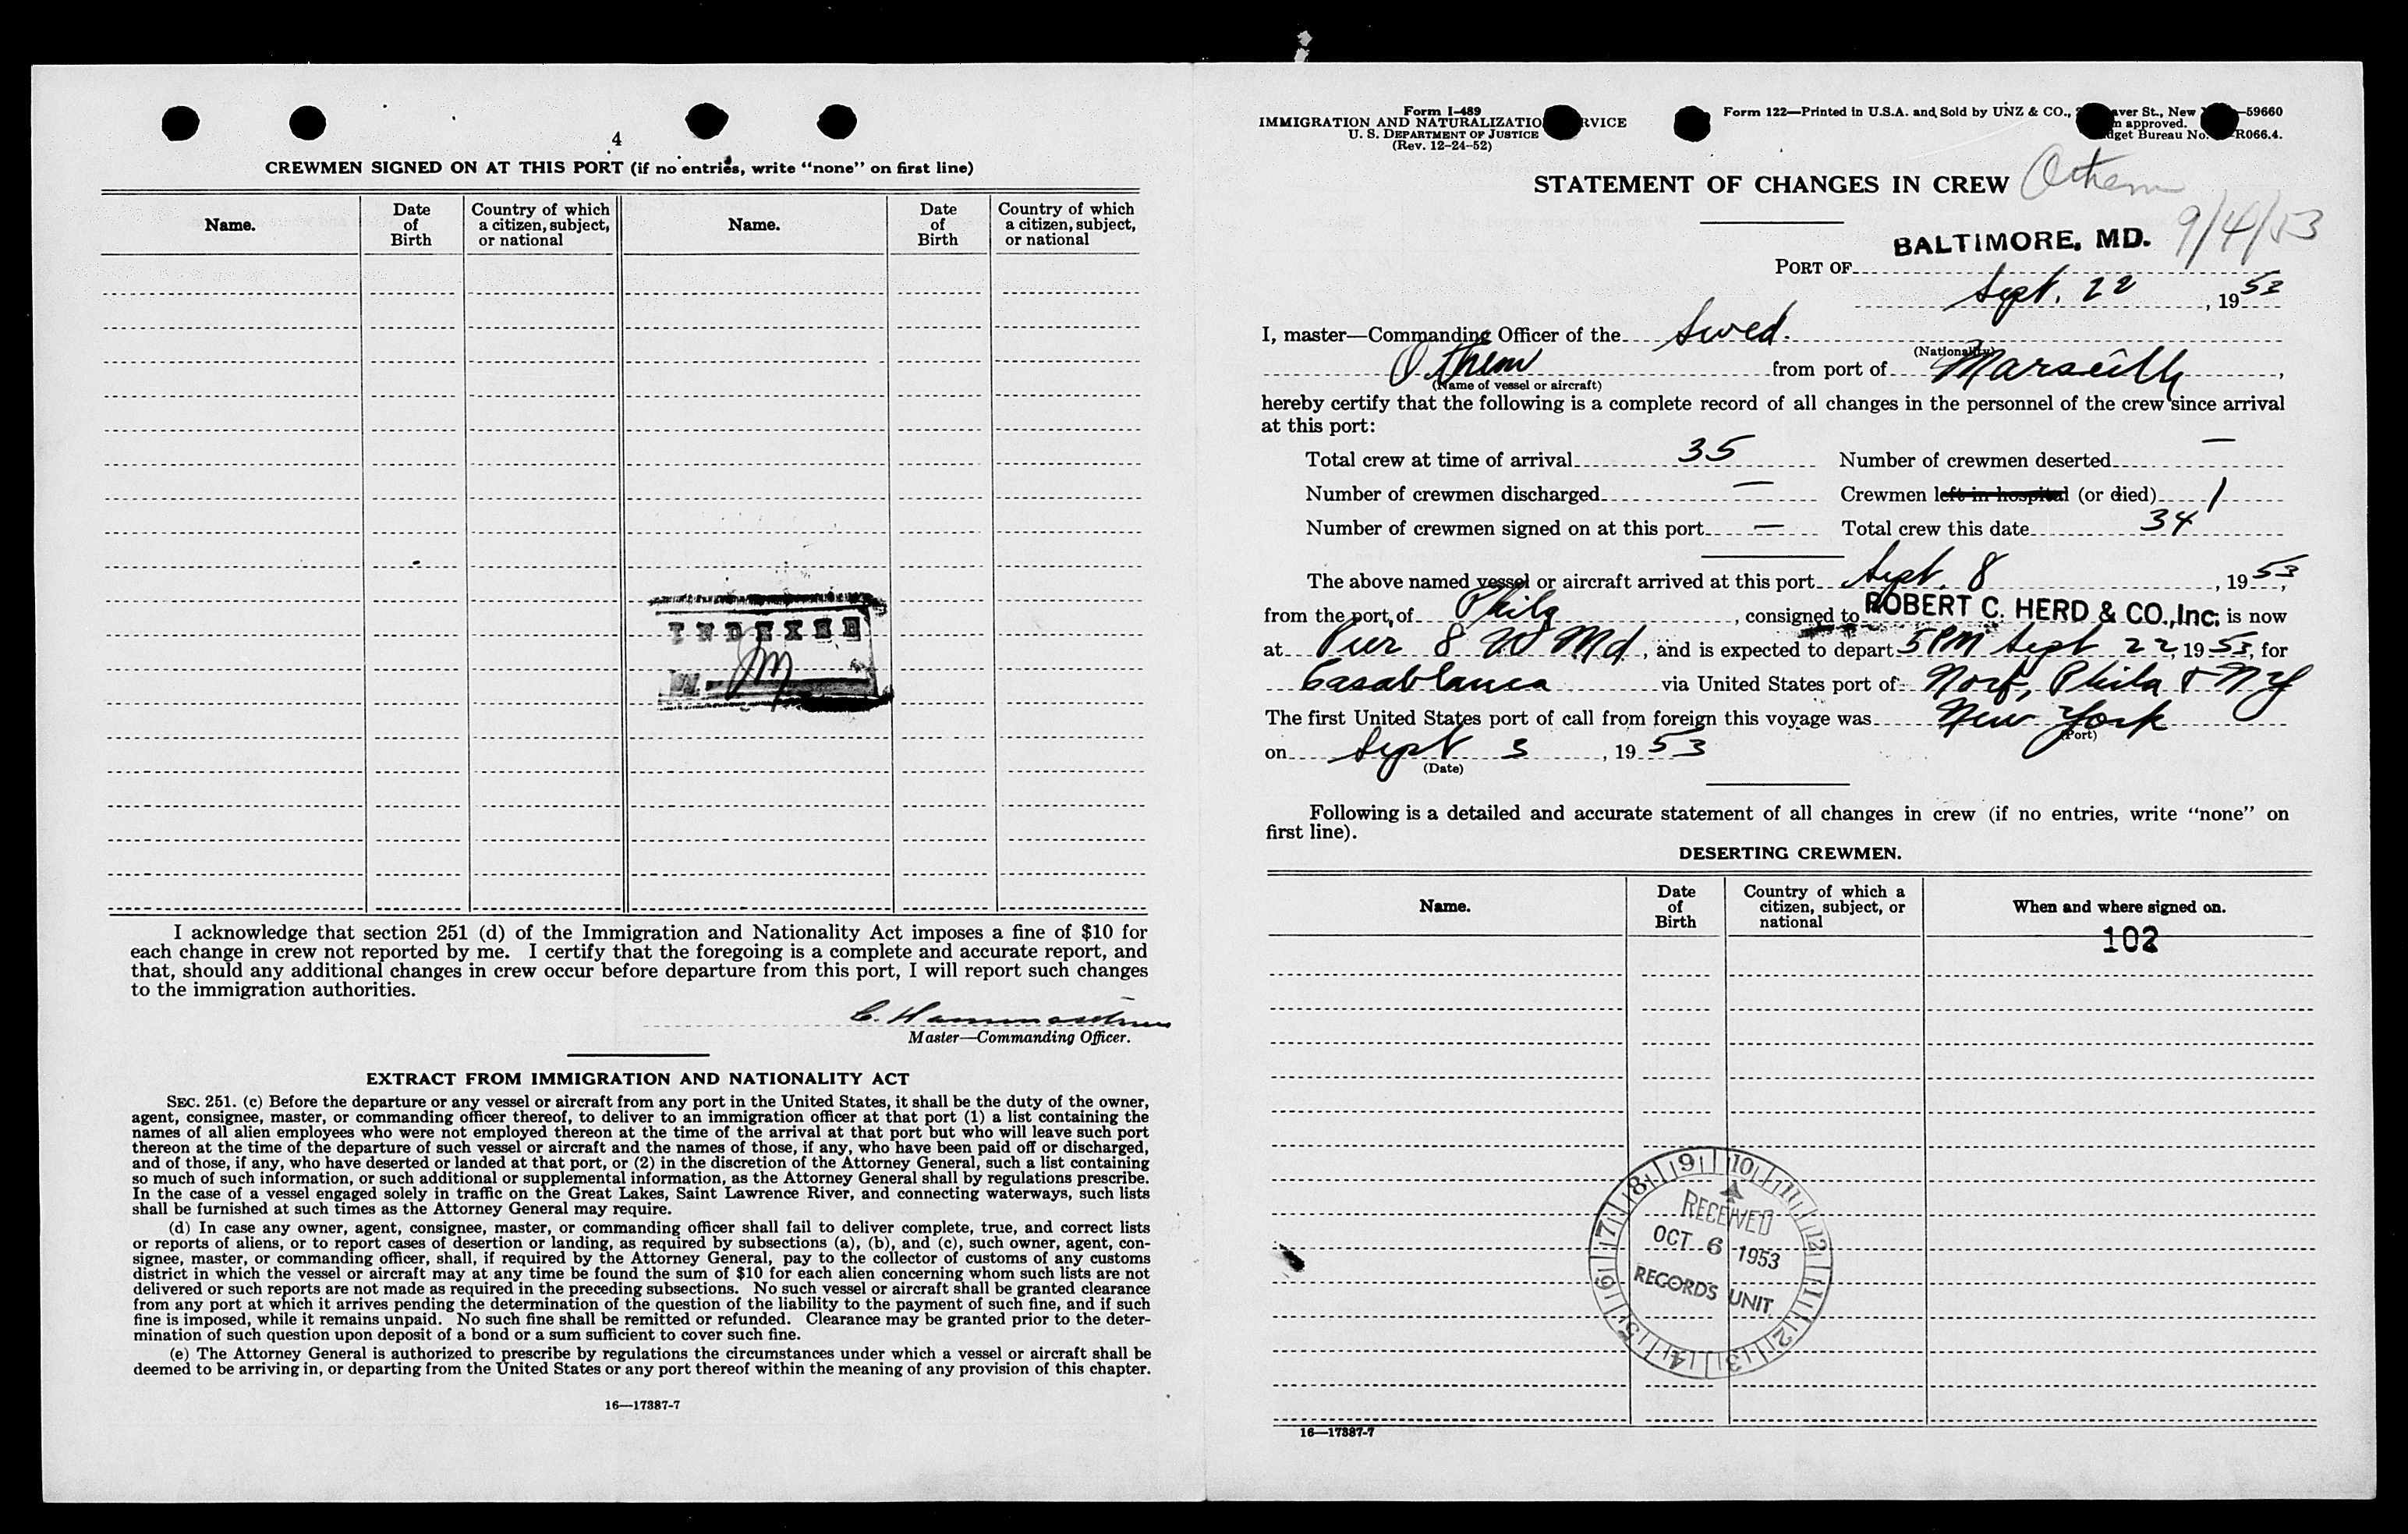 4
CREWMEN SIGNED ON AT THIS PORT (if no entries, write "none" on first line)
Name. Date of Birth Country of which a citizen, subject, or national Name. Date of Birth Country of which a citizen, subject, or national
INDEXED
I acknowledge that section 251 (d) of the Immigration and Nationality Act imposes a fine of $10 for
each change in crew not reported by me. I certify that the foregoing is a complete and accurate report, and
that, should any additional changes in crew occur before departure from this port, I will report such changes
to the immigration authorities.
Master—Commanding Officer.
EXTRACT FROM IMMIGRATION AND NATIONALITY ACT
SEC. 251. (c) Before the departure or any vessel or aircraft from any port in the United States, it shall be the duty of the owner,
agent, consignee, master, or commanding officer thereof, to deliver to an immigration officer at that port (1) a list containing the
names of all alien employees who were not employed thereon at the time of the arrival at that port but who will leave such port
thereon at the time of the departure of such vessel or aircraft and the names of those, if any, who have been paid off or discharged,
and of those, if any, who have deserted or landed at that port, or (2) in the discretion of the Attorney General, such a list containing
so much of such information, or such additional or supplemental information, as the Attorney General shall by regulations prescribe.
In the case of a vessel engaged solely in traffic on the Great Lakes, Saint Lawrence River, and connecting waterways, such lists
shall be furnished at such times as the Attorney General may require.
(d) In case any owner, agent, consignee, master, or commanding officer shall fail to deliver complete, true, and correct lists
or reports of aliens, or to report cases of desertion or landing, as required by subsections (a), (b), and (c), such owner, agent, con-
signee, master, or commanding officer, shall, if required by the Attorney General, pay to the collector of customs of any customs
district in which the vessel or aircraft may at any time be found the sum of $10 for each alien concerning whom such lists are not
delivered or such reports are not made as required in the preceding subsections. No such vessel or aircraft shall be granted clearance
from any port at which it arrives pending the determination of the question of the liability to the payment of such fine, and if such
fine is imposed, while it remains unpaid. No such fine shall be remitted or refunded. Clearance may be granted prior to the deter-
mination of such question upon deposit of a bond or a sum sufficient to cover such fine.
(e) The Attorney General is authorized to prescribe by regulations the circumstances under which a vessel or aircraft shall be
deemed to be arriving in, or departing from the United States or any port thereof within the meaning of any provision of this chapter.
16—17387-7
Form I-489
IMMIGRATION AND NATURALIZATIO RVICE
U. S. DEPARTMENT OF JUSTICE
(Rev. 12-24-52)
Form 122—Printed in U.S.A. and Sold by UNZ & CO., aver St., New —59660
approved.
get Bureau No. R066.4.
STATEMENT OF CHANGES IN CREW Othem
9/4/53
BALTIMORE, MD.
PORT OF
Sept. 22, 1953
I, master—Commanding Officer of the Swed.
(Nationality)
Othem from port of Marseille,
(Name of vessel or aircraft)
hereby certify that the following is a complete record of all changes in the personnel of the crew since arrival
at this port:
Total crew at time of arrival 35 Number of crewmen deserted —
Number of crewmen discharged — Crewmen left in hospital (or died) 1
Number of crewmen signed on at this port — Total crew this date 34
The above named vessel or aircraft arrived at this port Sept. 8, 1953,
from the port of Phila, consigned to ROBERT C. HERD & CO., Inc. is now
at Pier 8 W Md, and is expected to depart 5 PM Sept 22, 1953, for
Casablanca via United States port of Norf, Phila & NY
The first United States port of call from foreign this voyage was New York
(Port)
on Sept 3, 1953
(Date)
Following is a detailed and accurate statement of all changes in crew (if no entries, write "none" on
first line).
DESERTING CREWMEN.
Name. Date of Birth Country of which a citizen, subject, or national When and where signed on.
102
9 10 11 12 1 2 3 4 5 6 7 8
RECEIVED
OCT 6 1953
RECORDS UNIT
16—17387-7